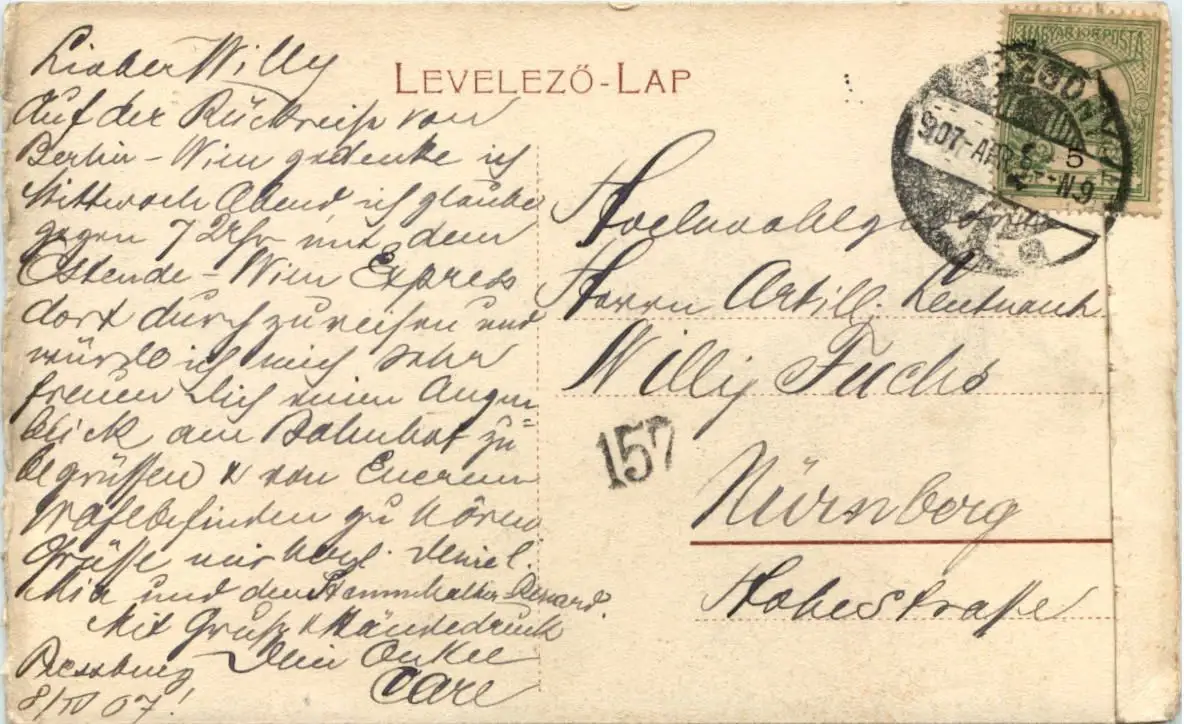 Lieber Willy
Auf der Rückreise von
Berlin – Wien gedenke ich
Mittwoch Abend ich glaube
gegen 7 Uhr mit dem
Ostende – Wien Express
dort durchzureisen und
würde ich mich sehr
freuen Dich einen Augen
blick am Bahnhof zu
begrüssen & von Euerem
Wohlbefinden zu hören
Grüsse mir
Mia und den Stammhalter
Mit Gruß & Händedruck
Dein Onkel
Carl
Pressburg
8/IV 07!
LEVELEZŐ-LAP
MAGYAR KIR. POSTA
5
907-APR
Herrn Artill. Leutnant
Willy Fuchs
157
Nürnberg
Hohestrasse